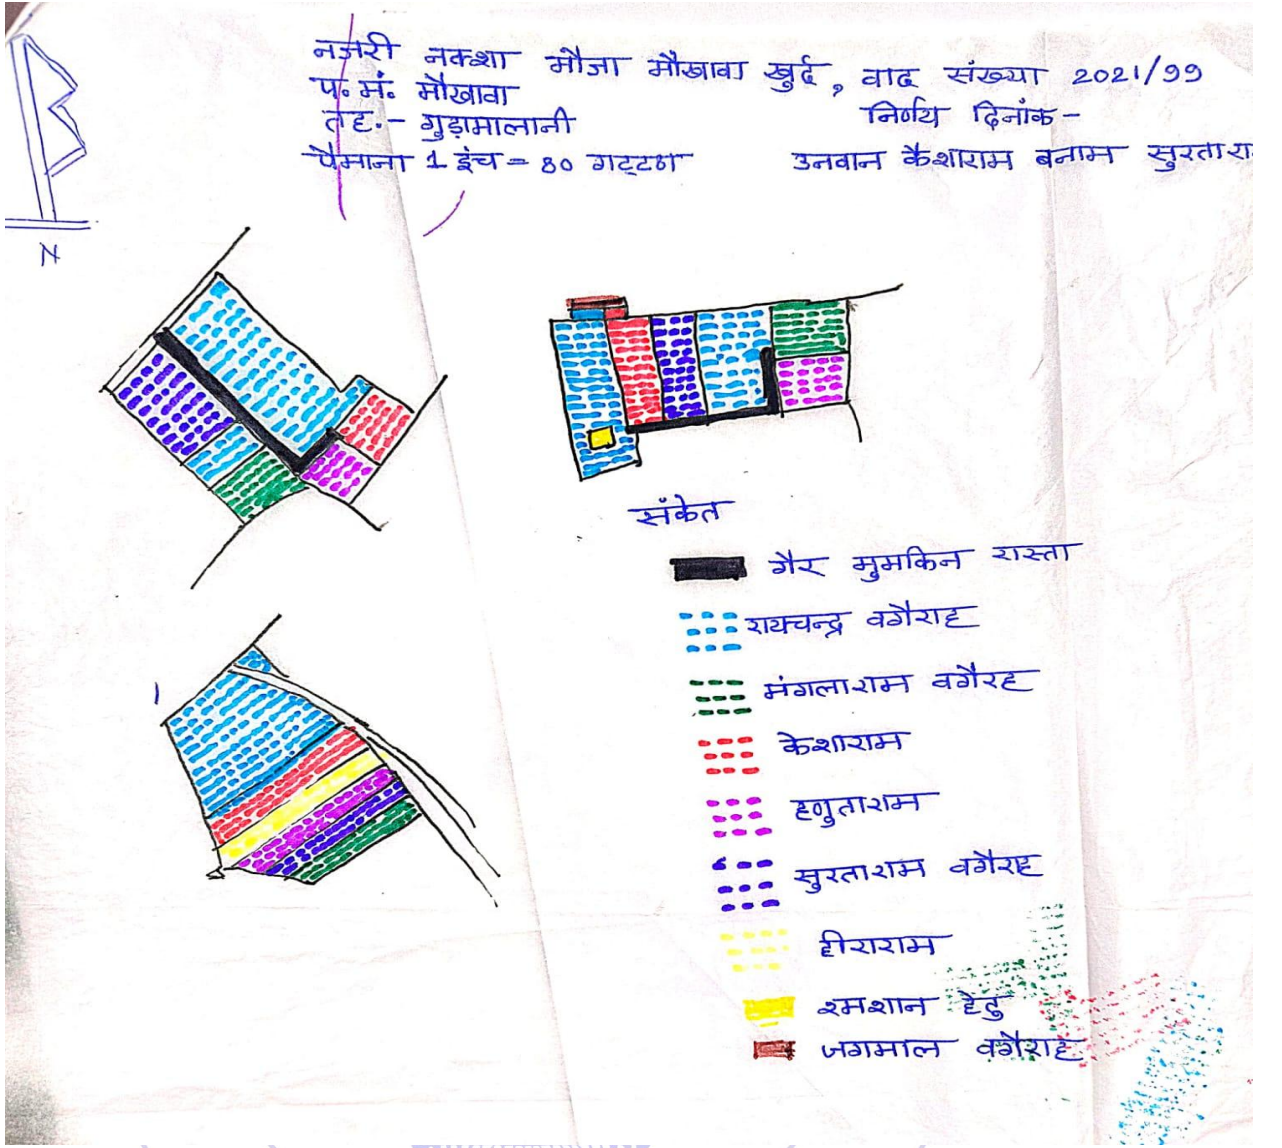 नजरी नक्शा मौजा मौखावा खुर्द, वाद संख्या 2021/99
प. मं. मौखावा
निर्णय दिनांक-
तह.- गुड़ामालानी
पैमाना 1 इंच = 80 गट्टठा उनवान कैशाराम बनाम सुरतारा
N
संकेत
गैर मुमकिन रास्ता
रायचन्द्र वगैराह
मंगलाराम वगैरह
केशाराम
हणुताराम
सुरताराम वगैराह
हीराराम
श्मशान हेतु
जगमाल वगैराह